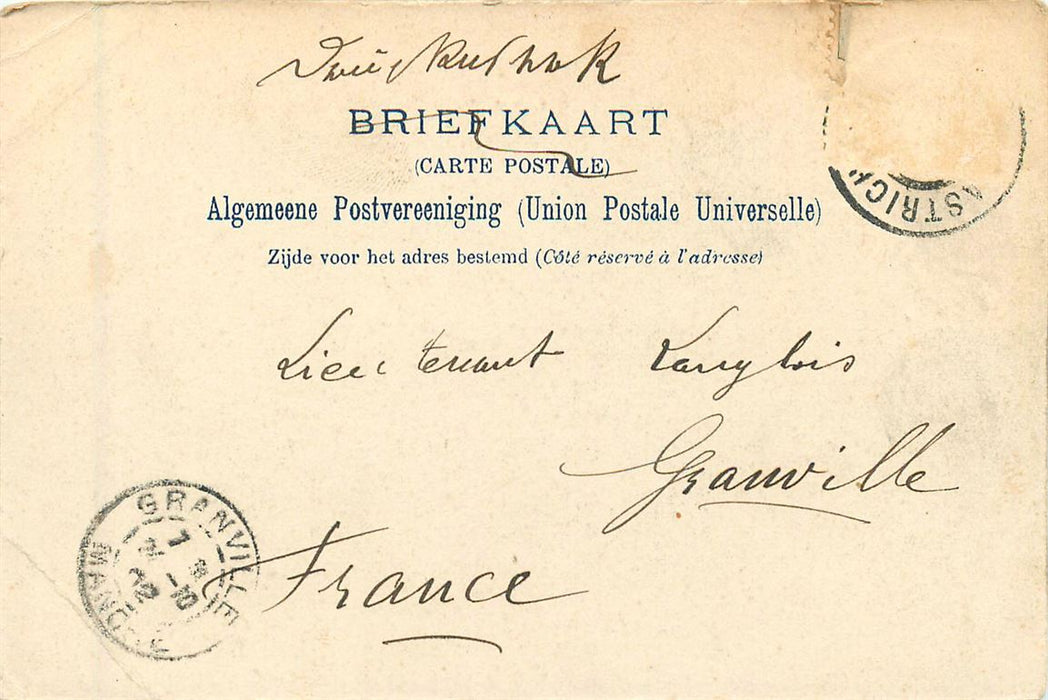 BRIEFKAART
(CARTE POSTALE)
Algemeene Postvereeniging (Union Postale Universelle)
Zijde voor het adres bestemd (Côté réservé à l'adresse)
STRICH
Lieutenant Langlois
Granville
France
GRANVILLE
MANCHE